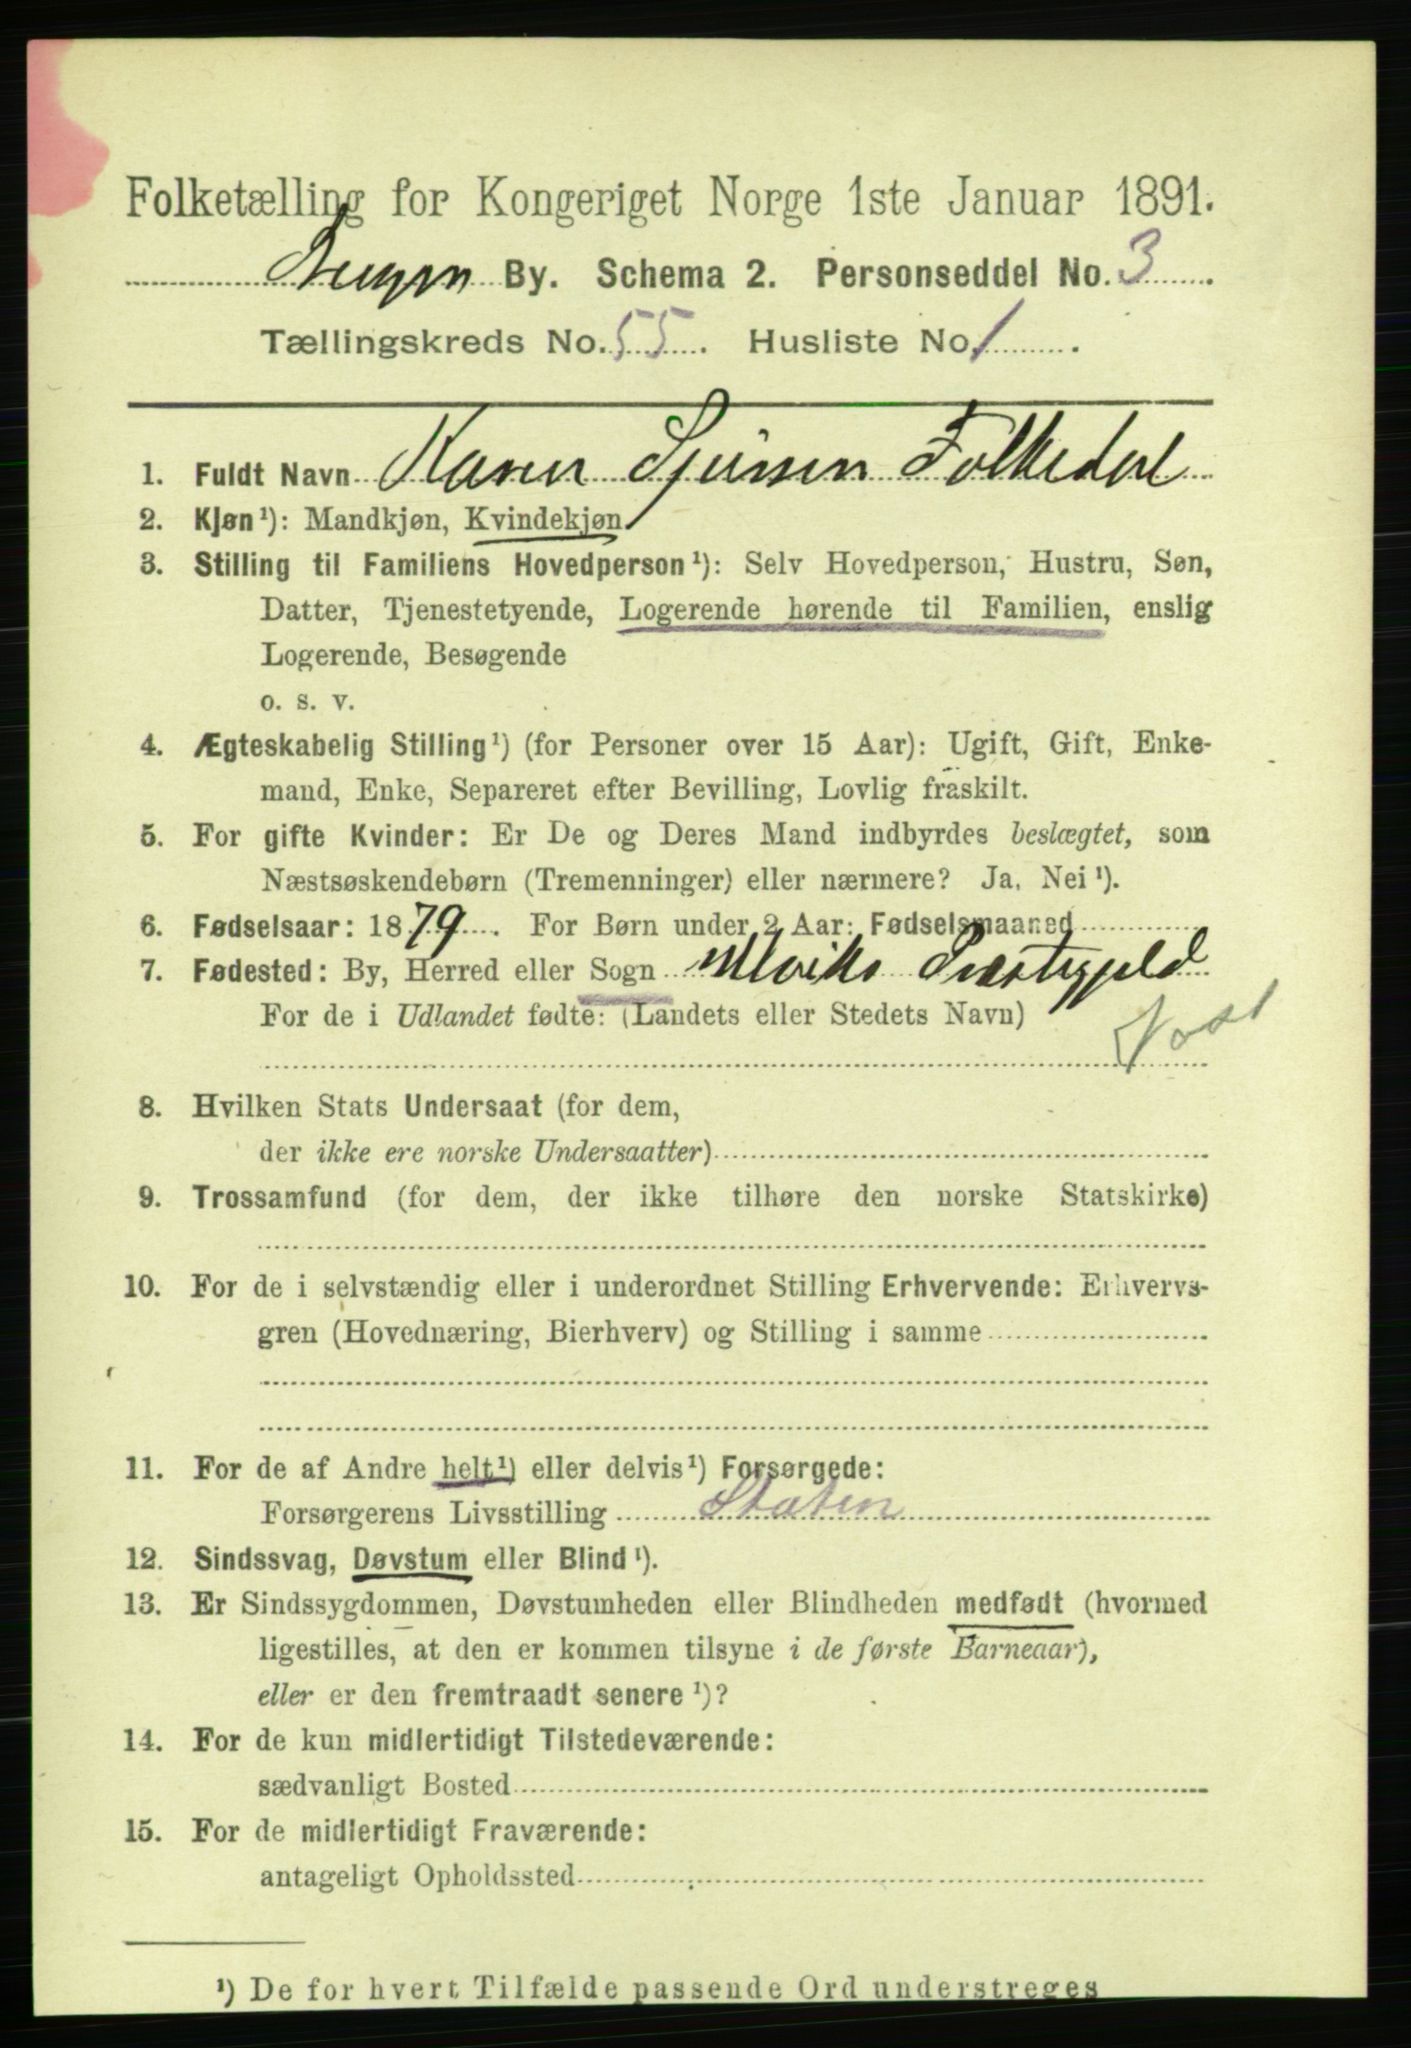 Folketælling for Kongeriget Norge 1ste Januar 1891.
Bergen By. Schema 2. Personseddel No. 3
Tællingskreds No. 55. Husliste No. 1.
1. Fuldt Navn Karen Sjursen Folkedal
2. Kjøn¹): Mandkjøn, Kvindekjøn
3. Stilling til Familiens Hovedperson¹): Selv Hovedperson, Hustru, Søn,
Datter, Tjenestetyende, Logerende hørende til Familien, enslig
Logerende, Besøgende
o. s. v.
4. Ægteskabelig Stilling¹) (for Personer over 15 Aar): Ugift, Gift, Enke-
mand, Enke, Separeret efter Bevilling, Lovlig fraskilt.
5. For gifte Kvinder: Er De og Deres Mand indbyrdes beslægtet, som
Næstsøskendebørn (Tremenninger) eller nærmere? Ja, Nei¹).
6. Fødselsaar: 1879. For Børn under 2 Aar: Fødselsmaaned
7. Fødested: By, Herred eller Sogn Ulviks Præstegjeld
For de i Udlandet fødte: (Landets eller Stedets Navn)
Vost
8. Hvilken Stats Undersaat (for dem,
der ikke ere norske Undersaatter)
9. Trossamfund (for dem, der ikke tilhøre den norske Statskirke)
10. For de i selvstændig eller i underordnet Stilling Erhvervende: Erhvervs-
gren (Hovednæring, Bierhverv) og Stilling i samme
11. For de af Andre helt¹) eller delvis¹) Forsørgede:
Forsørgerens Livsstilling Staten
12. Sindssvag, Døvstum eller Blind¹).
13. Er Sindssygdommen, Døvstumheden eller Blindheden medfødt (hvormed
ligestilles, at den er kommen tilsyne i de første Barneaar),
eller er den fremtraadt senere¹)?
14. For de kun midlertidigt Tilstedeværende:
sædvanligt Bosted
15. For de midlertidigt Fraværende:
antageligt Opholdssted
¹) De for hvert Tilfælde passende Ord understreges